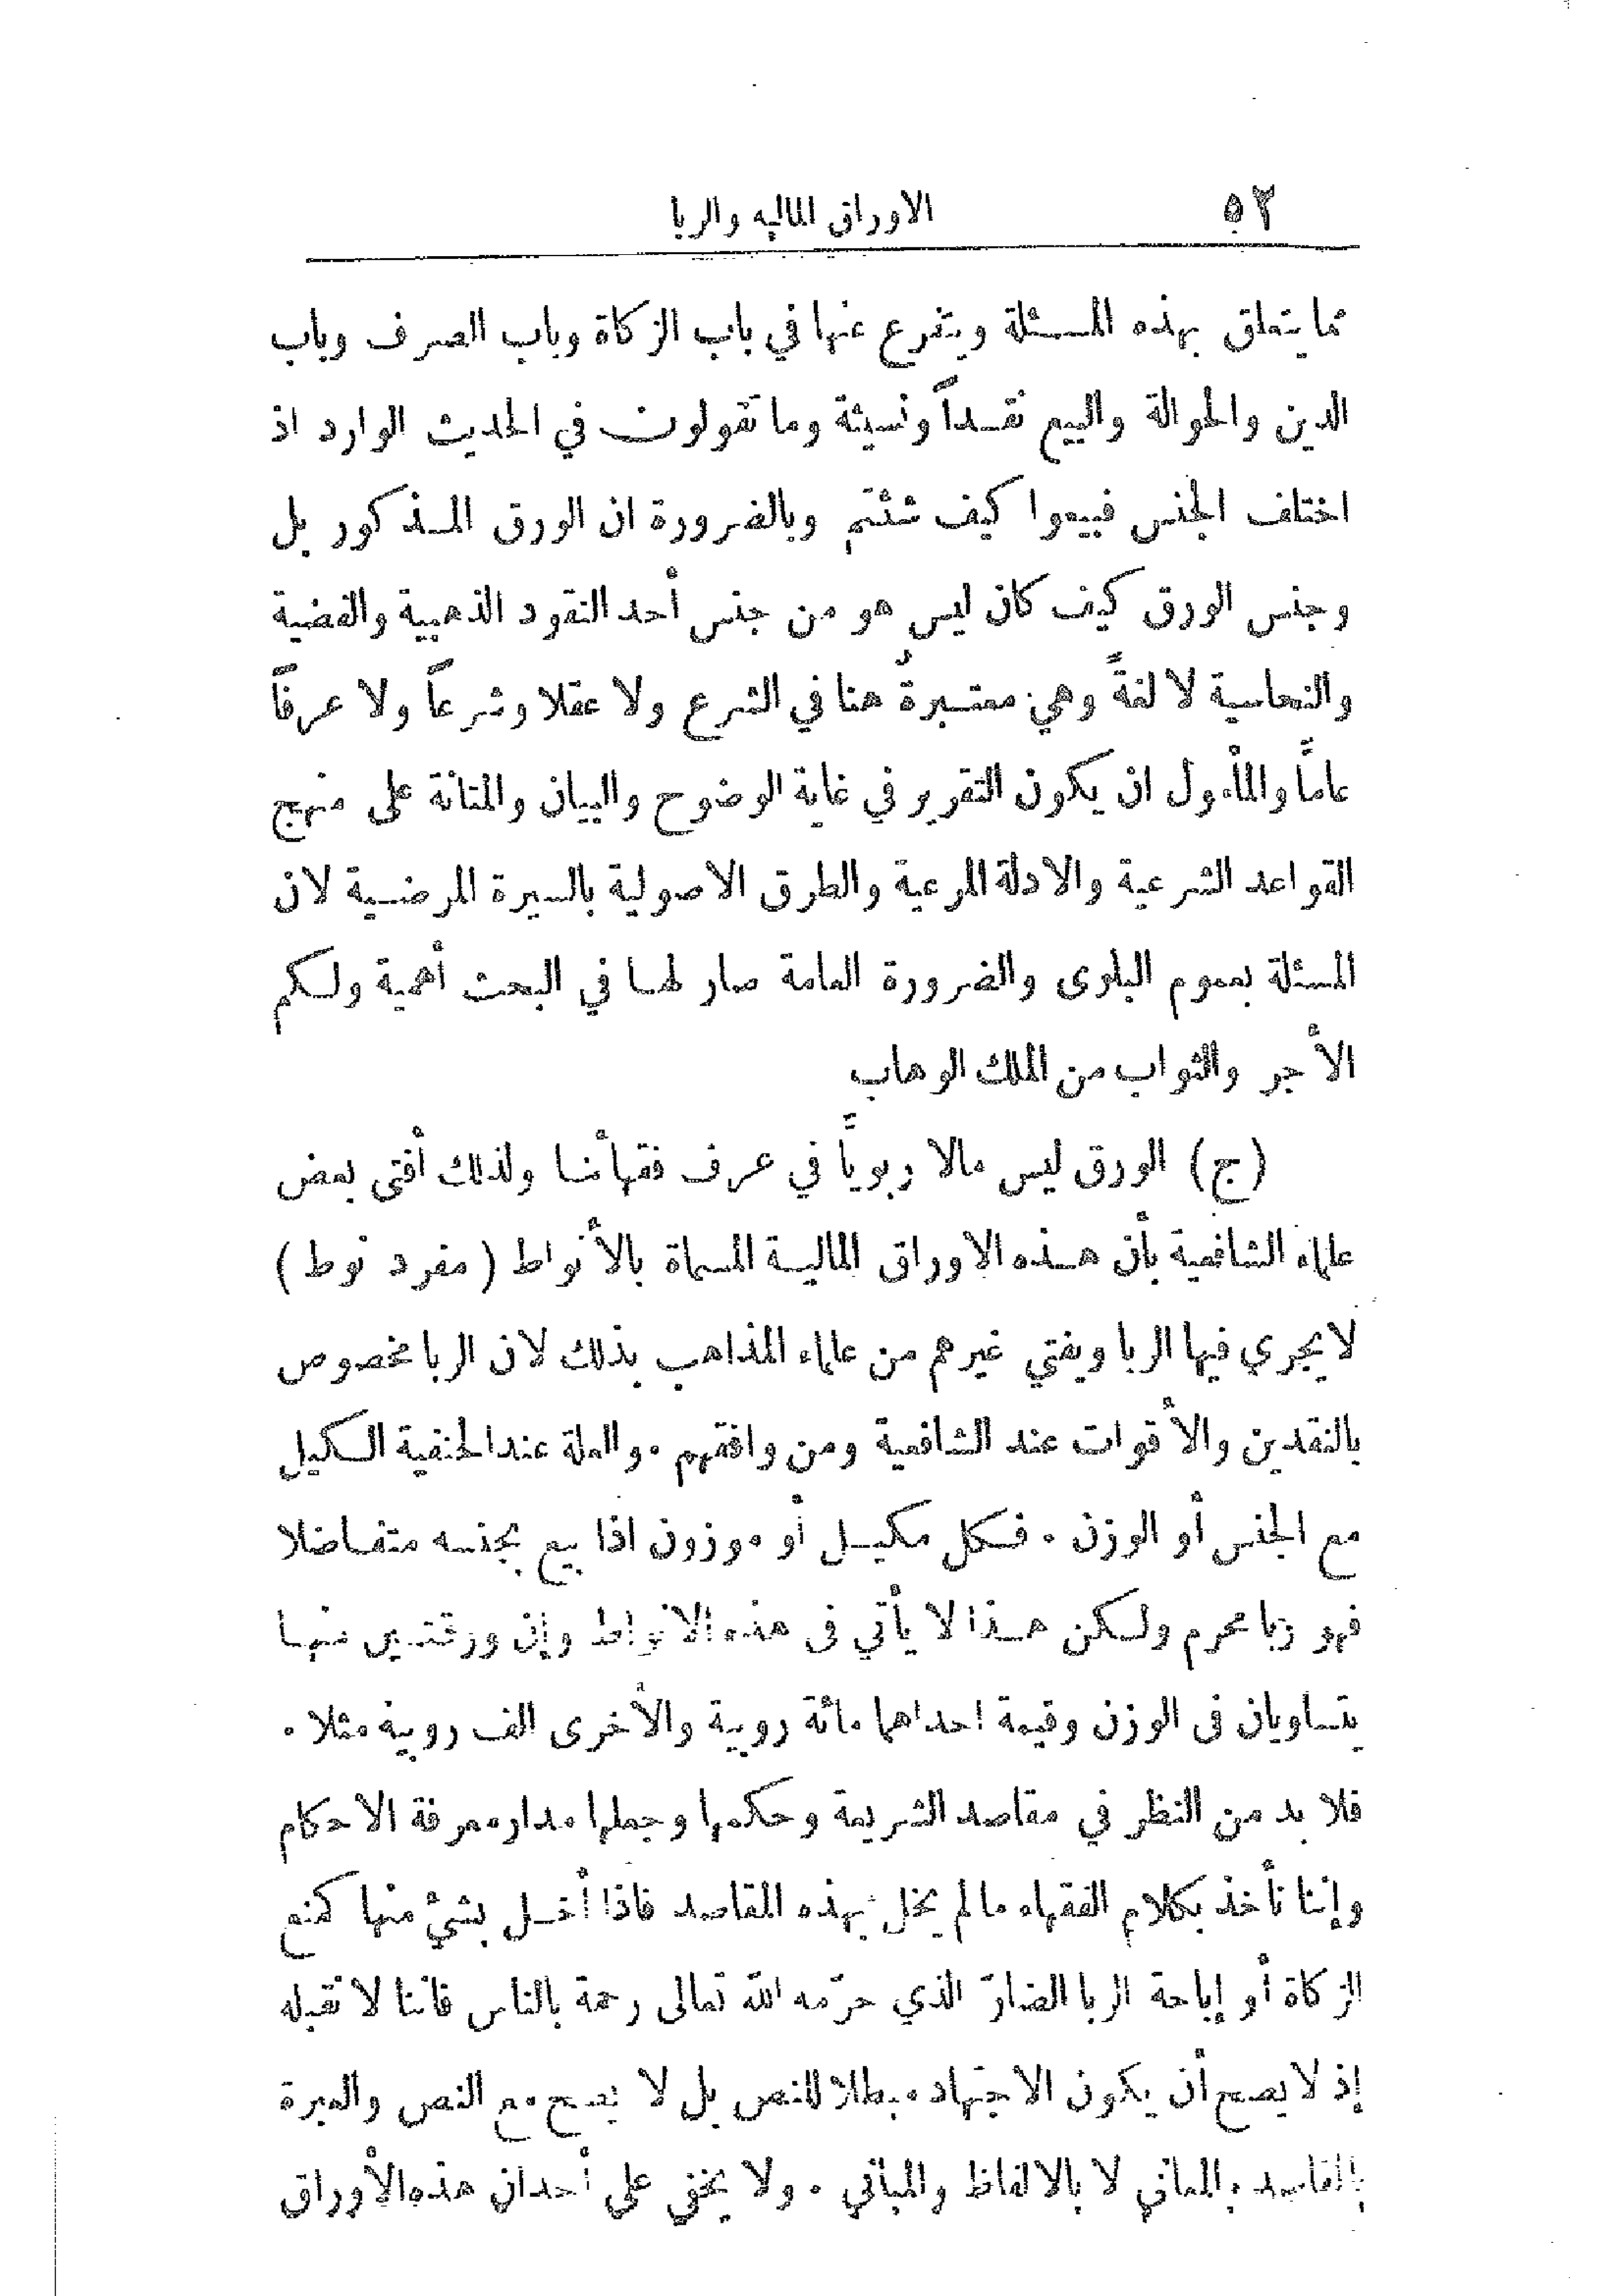 ٥٢ الاوراق المالية والربا
مما يتعلق بهذه المسئلة ويتفرع عنها في باب الزكاة وباب الصرف وباب
الدين والحوالة والبيع نقداً ونسيئة وما تقولون في الحديث الوارد اذ
اختلف الجنس فبيعوا كيف شئتم وبالضرورة ان الورق المذكور بل
وجنس الورق كيف كان ليس هو من جنس أحد النقود الذهبية والفضية
والنحاسية لا لغةً وهي معتبرةٌ هنا في الشرع ولا عقلا وشرعاً ولا عرفاً
عامّاً والمأمول ان يكون التقرير في غاية الوضوح والبيان والمتانة على منهج
القواعد الشرعية والادلة المرعية والطرق الاصولية بالسيرة المرضية لان
المسئلة بعموم البلوى والضرورة العامة صار لها في البحث أهمية ولكم
الأجر والثواب من الملك الوهاب
(ج) الورق ليس مالا ربويّاً في عرف فقهائنا ولذلك أفتى بعض
علماء الشافعية بأن هذه الاوراق المالية المسماة بالأنواط (مفرد نوط)
لا يجري فيها الربا ويفتي غيرهم من علماء المذاهب بذلك لان الربا مخصوص
بالنقدين والأقوات عند الشافعية ومن وافقهم . والعلة عند الحنفية الكيل
مع الجنس أو الوزن . فكل مكيل أو موزون اذا بيع بجنسه متفاضلا
فهو ربا محرم ولكن هذا لا يأتي في هذه الانواط وإن ورقتين منها
يتساويان في الوزن وقيمة احداهما مائة روبية والأخرى الف روبية مثلا .
فلا بد من النظر في مقاصد الشريعة وحكمها وجعلها مدار معرفة الاحكام
وإننا نأخذ بكلام الفقهاء ما لم يخل بهذه المقاصد فاذا أخل بشيء منها كمنع
الزكاة أو إباحة الربا الضارّ الذي حرّمه الله تعالى رحمة بالناس فاننا لا نقبله
إذ لا يصح أن يكون الاجتهاد مبطلا للنص بل لا يصح مع النص والعبرة
بالمقاصد والمعاني لا بالالفاظ والمباني . ولا يخفى على أحد ان هذه الأوراق